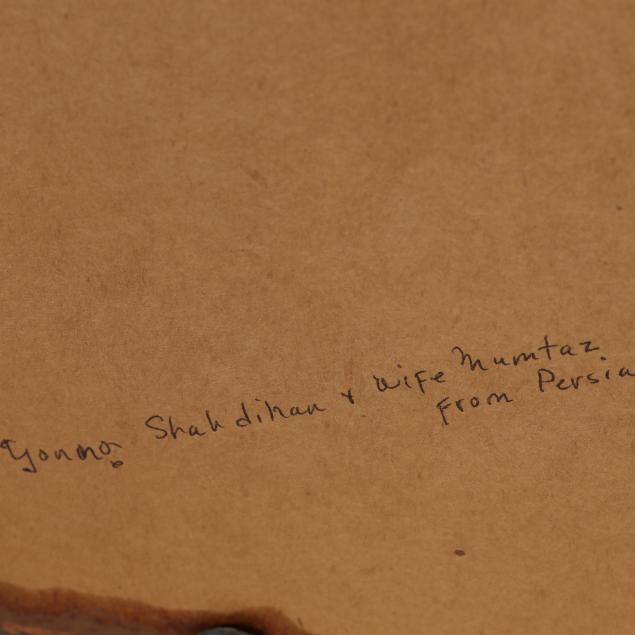 Young Shahdihan & wife Mumtaz
From Persia